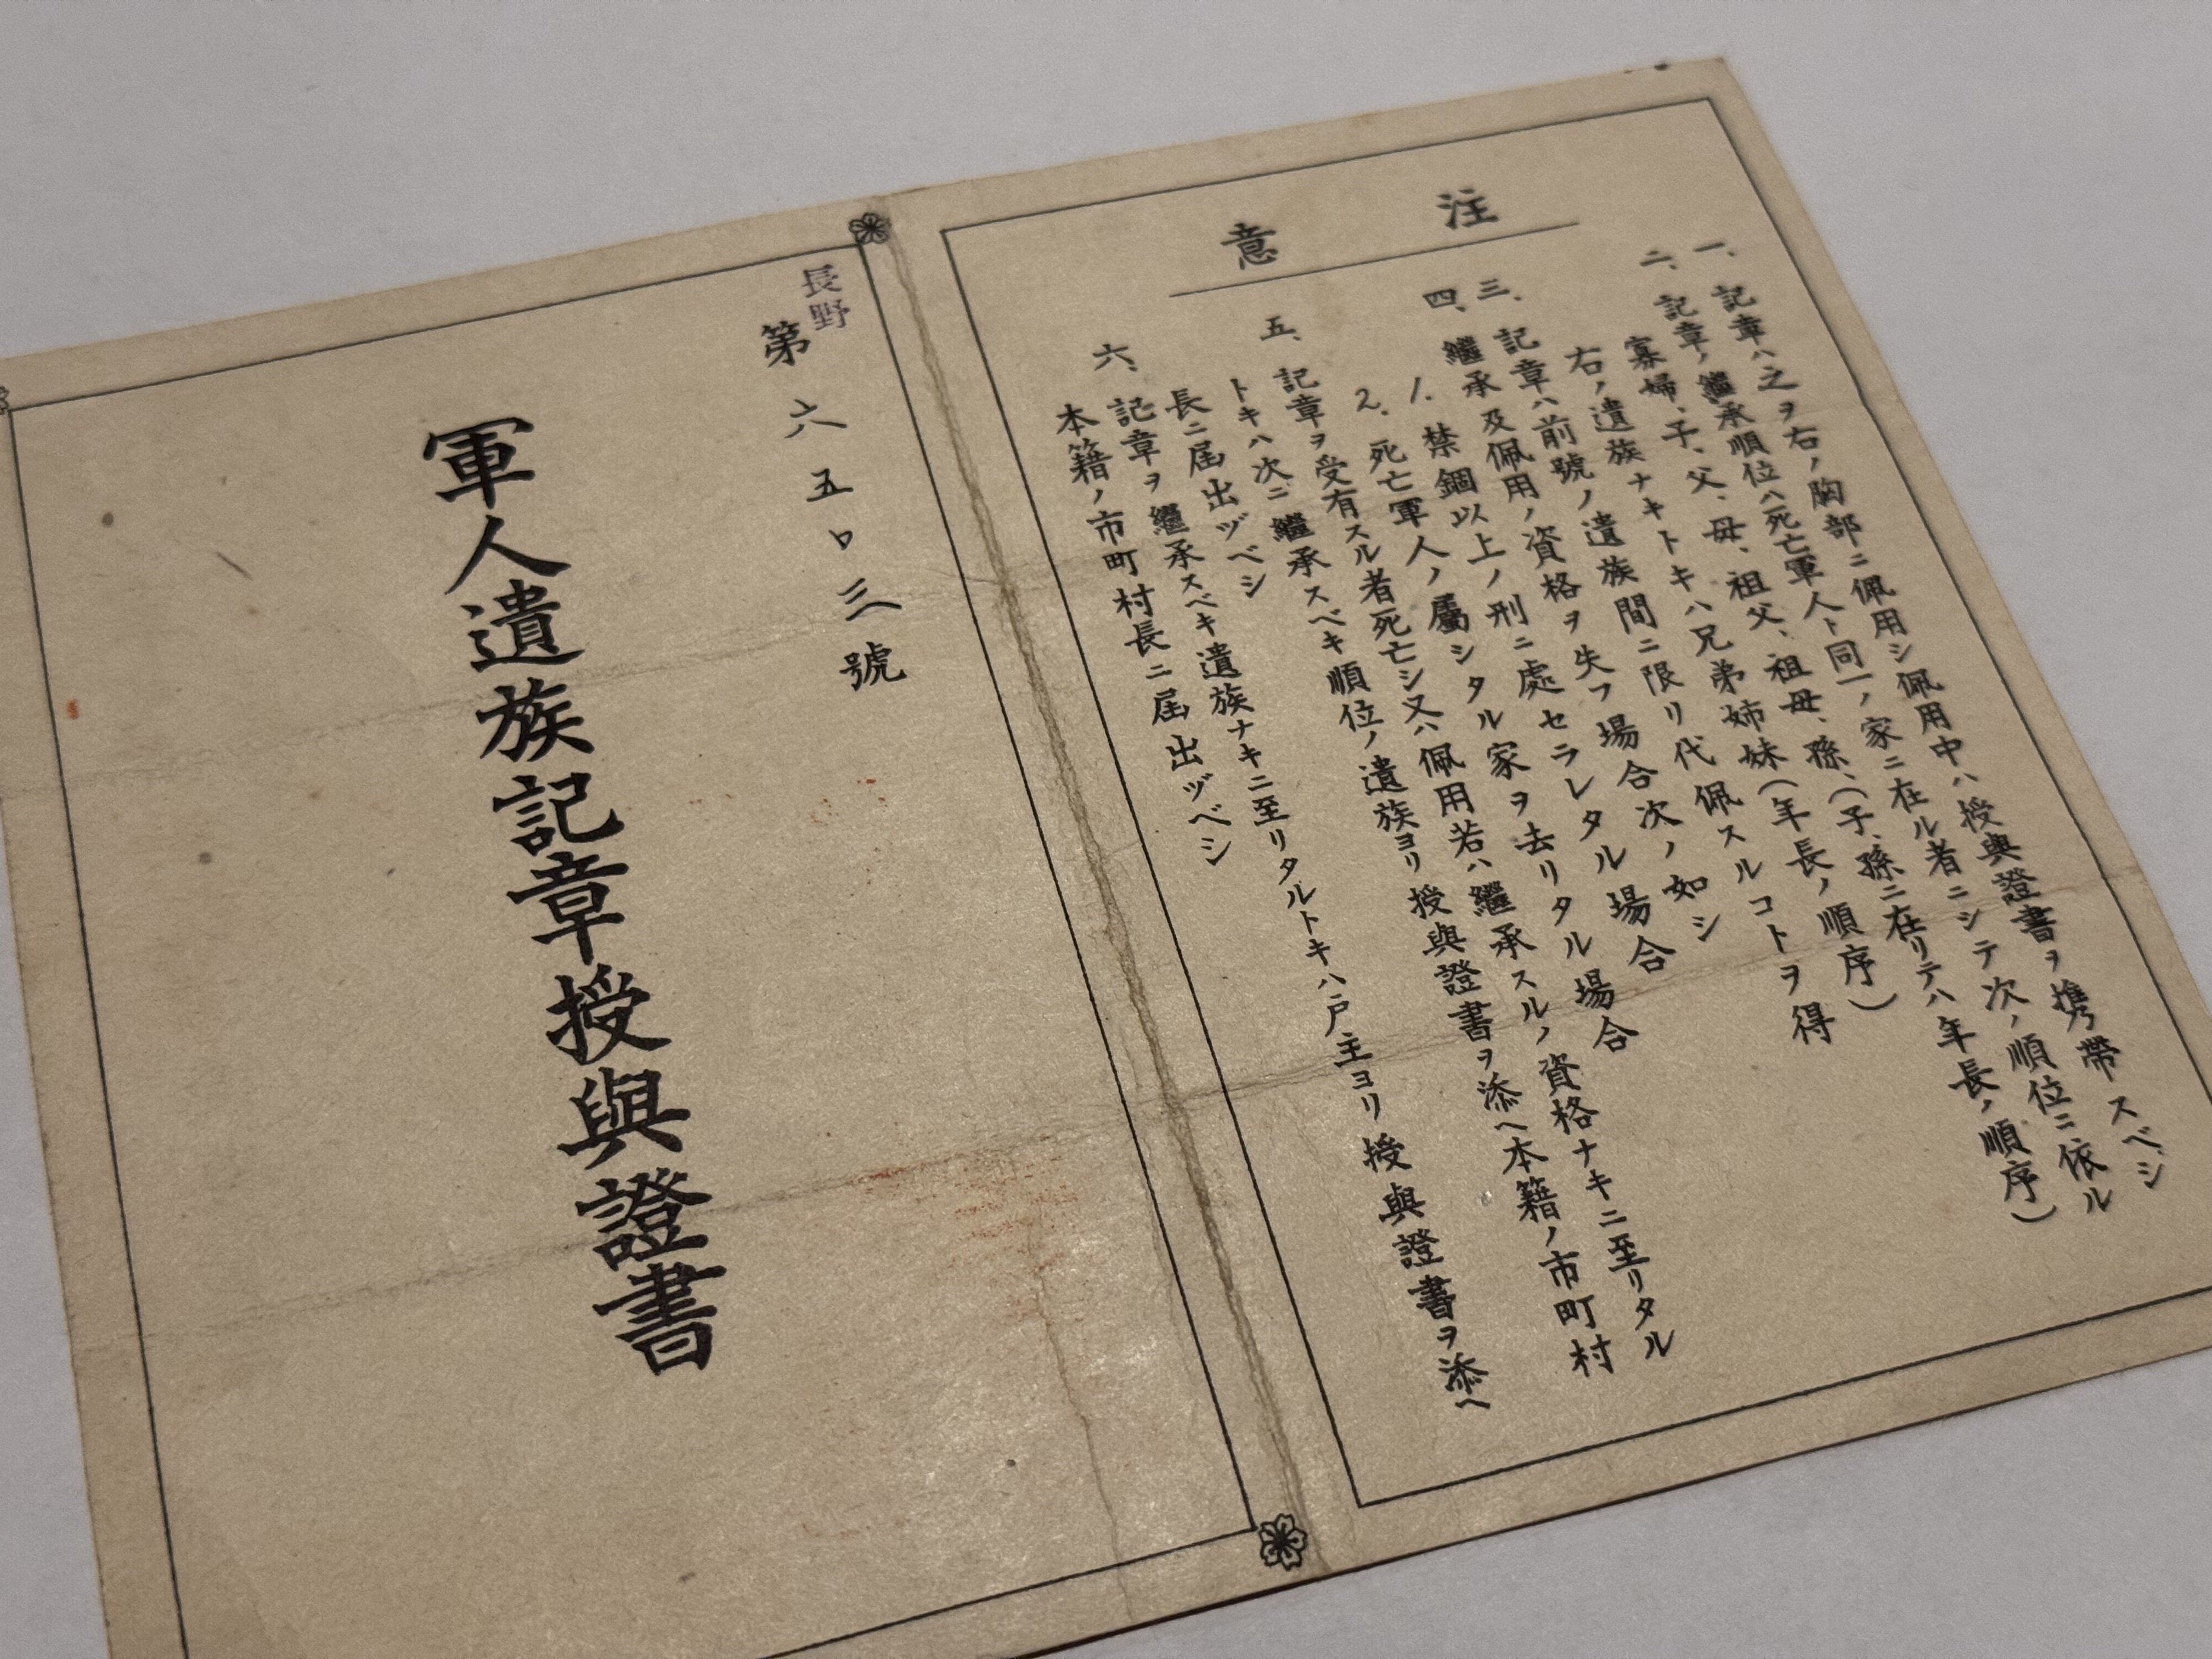 注意
一、記章ハ之ヲ右ノ胸部ニ佩用シ佩用中ハ授與證書ヲ携帶スベシ
二、記章ノ繼承順位ハ死亡軍人ト同一ノ家ニ在ル者ニシテ次ノ順位ニ依ル
寡婦、子、父、母、祖父、祖母、孫、(子、孫ニ在リテハ年長ノ順序)
右ノ遺族ナキトキハ兄弟姉妹(年長ノ順序)
三、記章ハ前號ノ遺族間ニ限リ代佩スルコトヲ得
四、繼承及佩用ノ資格ヲ失フ場合次ノ如シ
1. 禁錮以上ノ刑ニ處セラレタル場合
2. 死亡軍人ノ屬シタル家ヲ去リタル場合
五、記章ヲ受有スル者死亡シ又ハ佩用若ハ繼承スルノ資格ナキニ至リタル
トキハ次ニ繼承スベキ順位ノ遺族ヨリ授與證書ヲ添ヘ本籍ノ市町村
長ニ届出ヅベシ
六、記章ヲ繼承スベキ遺族ナキニ至リタルトキハ戸主ヨリ授與證書ヲ添ヘ
本籍ノ市町村長ニ届出ヅベシ
長野
第六五〇三號
軍人遺族記章授與證書